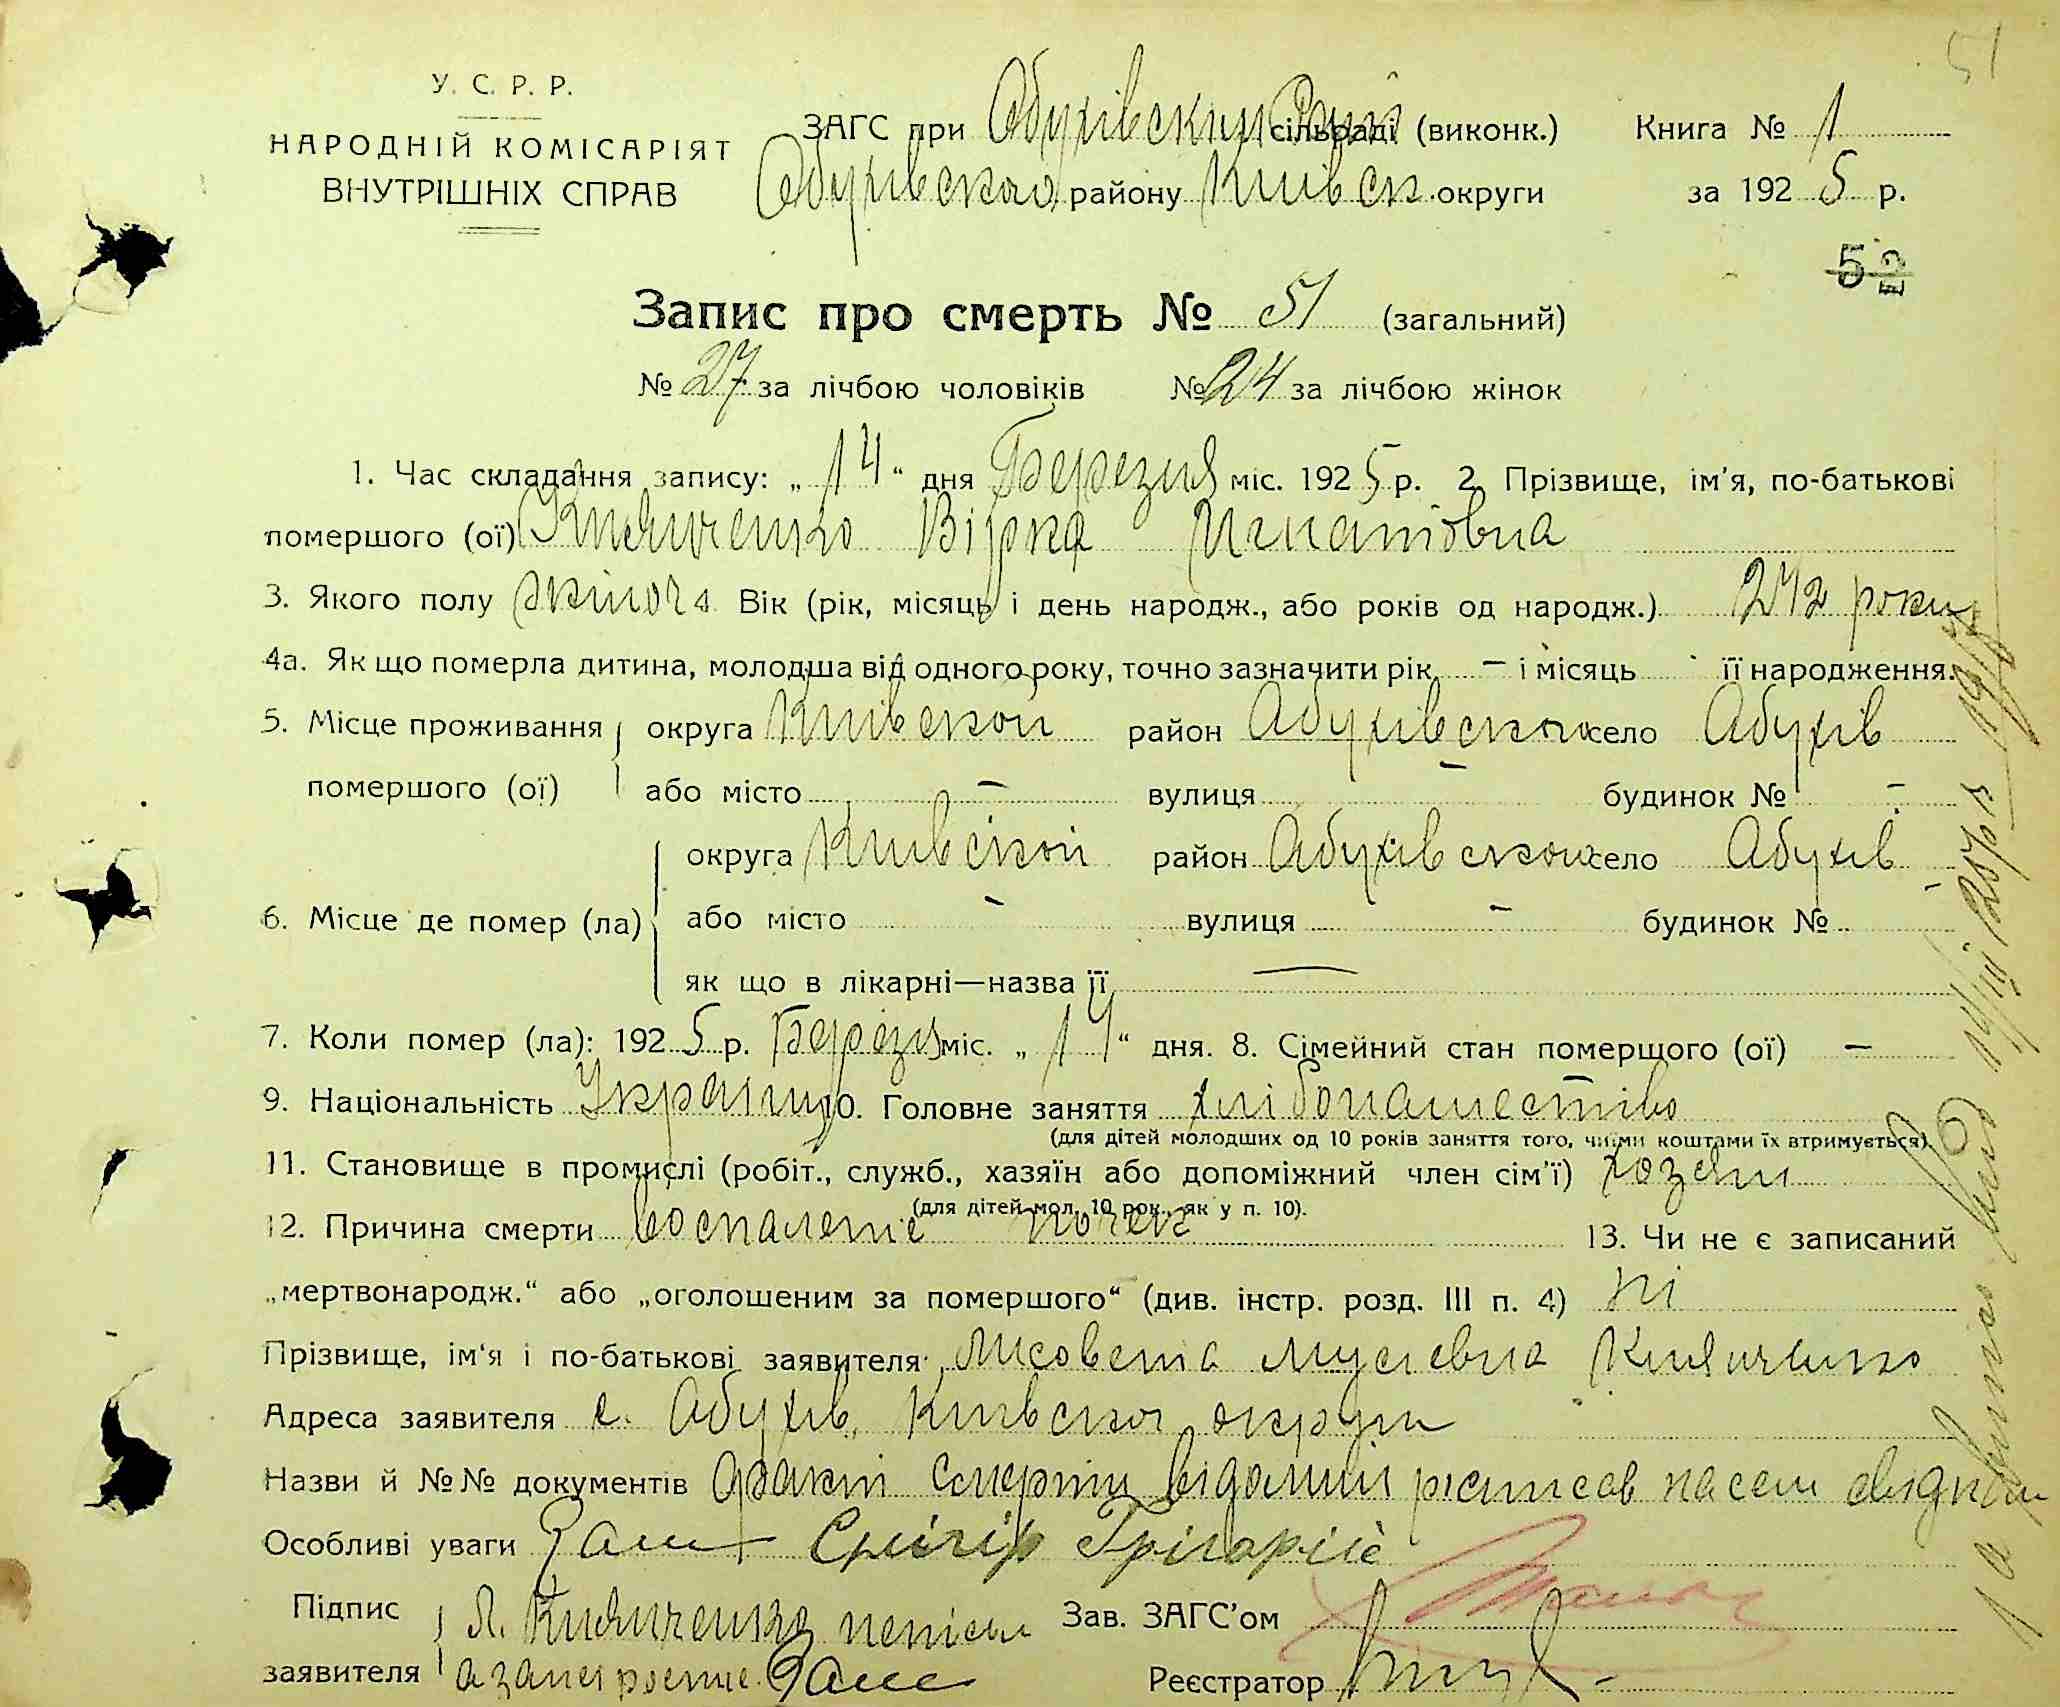 51
У. С. Р. Р.
НАРОДНІЙ КОМІСАРІЯТ
ВНУТРІШНІХ СПРАВ
ЗАГС при Обухівским Райі сільраді (виконк.)
Обухівского району Київск. округи
Книга № 1
за 1925 р.
52
Запис про смерть № 51 (загальний)
№ 27 за лічбою чоловіків № 24 за лічбою жінок
1. Час складання запису: „14“ дня Березня міс. 1925 р. 2. Прізвище, ім'я, по-батькові
помершого (ої) Княиченко Вірка Игнатовна
3. Якого полу жіноча Вік (рік, місяць і день народж., або років од народж.) 2 1/2 роки
4а. Як що померла дитина, молодша від одного року, точно зазначити рік — і місяць її народження.
5. Місце проживання округа Київской район Абухівского село Абухів
помершого (ої) або місто — вулиця — будинок № -
округа Київской район Абухівского село Абухів
6. Місце де помер (ла) або місто - вулиця - будинок № -
як що в лікарні—назва її —
7. Коли помер (ла): 1925 р. Березня міс. „14“ дня. 8. Сімейний стан помершого (ої) —
9. Національність Украинц 10. Головне заняття хлібопашество
(для дітей молодших од 10 років заняття того, чиїми коштами їх втримується).
11. Становище в промислі (робіт., служб., хазяїн або допоміжний член сім'ї) хозяин
(для дітей мол. 10 рок., як у п. 10).
12. Причина смерти воспаление почек 13. Чи не є записаний
„мертвонародж.“ або „оголошеним за помершого“ (див. інстр. розд. III п. 4) ні
Прізвище, ім'я і по-батькові заявителя Лисовета Мусиевна Княиченко
Адреса заявителя с. Абухів, Київскої округи
Назви й №№ документів факт смерти відомий свідком
Особливі уваги Снігір Грігорій
Підпис Л. Княиченко Зав. ЗАГС'ом
заявителя Реєстратор
14/III 25 р.